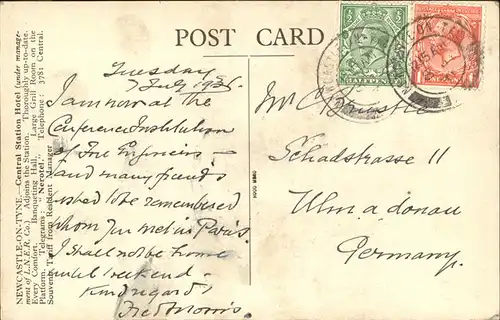 POST CARD
Tuesday
7 July 1936.
I am now at the
Conference Institution
of Fire Engineers -
and many friends
asked to be remembered
whom you met in Paris.
I shall not be home
until weekend -
Kind regards
Fred Morris.
Schadstrasse 11
Ulm a. donau
Germany.
NEWCASTLE-ON-TYNE. Central Station Hotel (under manage-
ment of L.N.E.R. Co.) Adjoins the Station. Thoroughly up-to-date.
Every Comfort. Banqueting Hall. Large Grill Room on the
Platform. Telegrams: "Nerotel." Telephone: 3781 Central.
Souvenir Tariff from Resident Manager